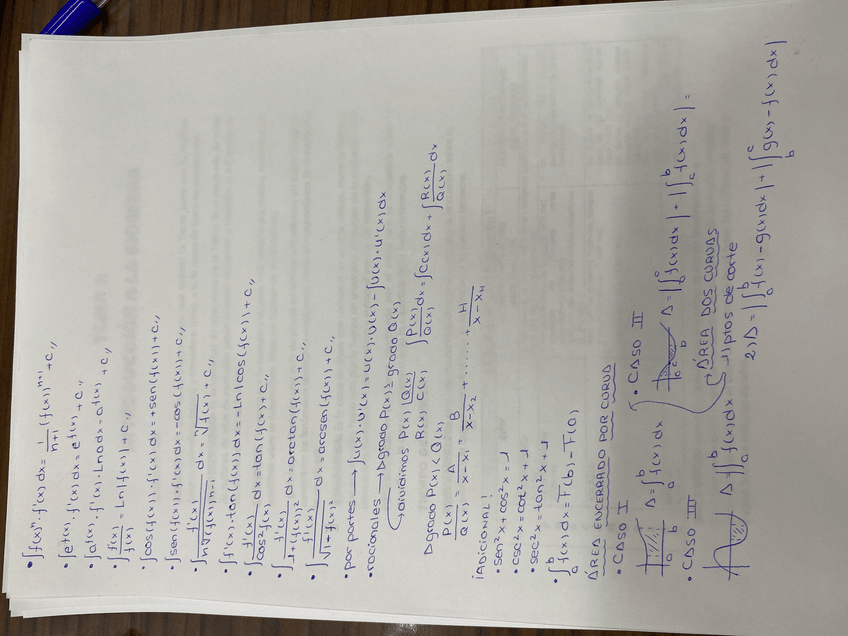 • ∫f(x)ⁿ · f'(x) dx = 1/(n+1) (f(x))ⁿ⁺¹ + C,,
• ∫e^f(x) · f'(x) dx = e^f(x) + C,,
• ∫a^f(x) · f'(x) · Ln a dx = a^f(x) + C,,
• ∫ f'(x)/f(x) = Ln|f(x)| + C,,
• ∫cos(f(x)) · f'(x) dx = + sen(f(x)) + C,,
• ∫sen(f(x)) · f'(x) dx = -cos(f(x)) + C,,
• ∫ f'(x)/(n ⁿ√(f(x))ⁿ⁻¹) dx = ⁿ√f(x) + C,,
• ∫f'(x) · tan(f(x)) dx = -Ln|cos(f(x))| + C,,
• ∫ f'(x)/cos²f(x) dx = tan(f(x)) + C,,
• ∫ f'(x)/(1+(f(x))²) dx = arctan(f(x)) + C,,
• ∫ f'(x)/√(1+f(x)²) dx = arcsen(f(x)) + C,,
• por partes → ∫u(x) · v'(x) = u(x) · v(x) - ∫v(x) · u'(x) dx
• racionales → Δgrado P(x) ≥ grado Q(x)
dividimos P(x) |Q(x)
R(x) C(x)
∫ P(x)/Q(x) dx = ∫C(x) dx + ∫ R(x)/Q(x) dx
Δgrado P(x) < Q(x)
P(x)/Q(x) = A/(x-x₁) + B/(x-x₂) + ...... + H/(x-x_H)
¡ADICIONAL!
• sen²x + cos²x = 1
• csc²x = cot²x + 1
• sec²x = tan²x + 1
• ∫ₐᵇ f(x) dx = F(b) - F(a)
ÁREA ENCERRADO POR CURVA
• CASO I
a b
A = ∫ₐᵇ f(x) dx
• CASO II
a c b
A = |∫ₐᶜ f(x) dx| + |∫_cᵇ f(x) dx| =
• CASO III
A = ∫ₐᵇ f(x) dx
→ ÁREA DOS CURVAS
1) ptos de corte
2) A = |∫ₐᵇ f(x) - g(x) dx| + |∫_bᶜ g(x) - f(x) dx|